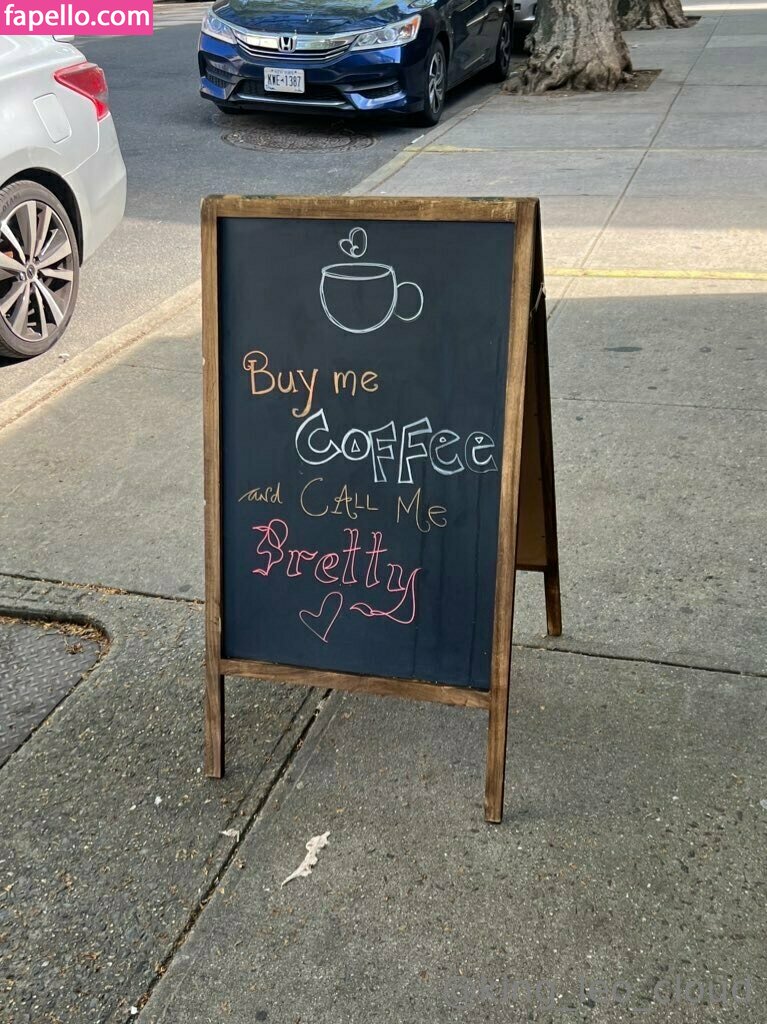 fapello.com
KWE-1387
Buy me
COFFEE
and CALL Me
Pretty